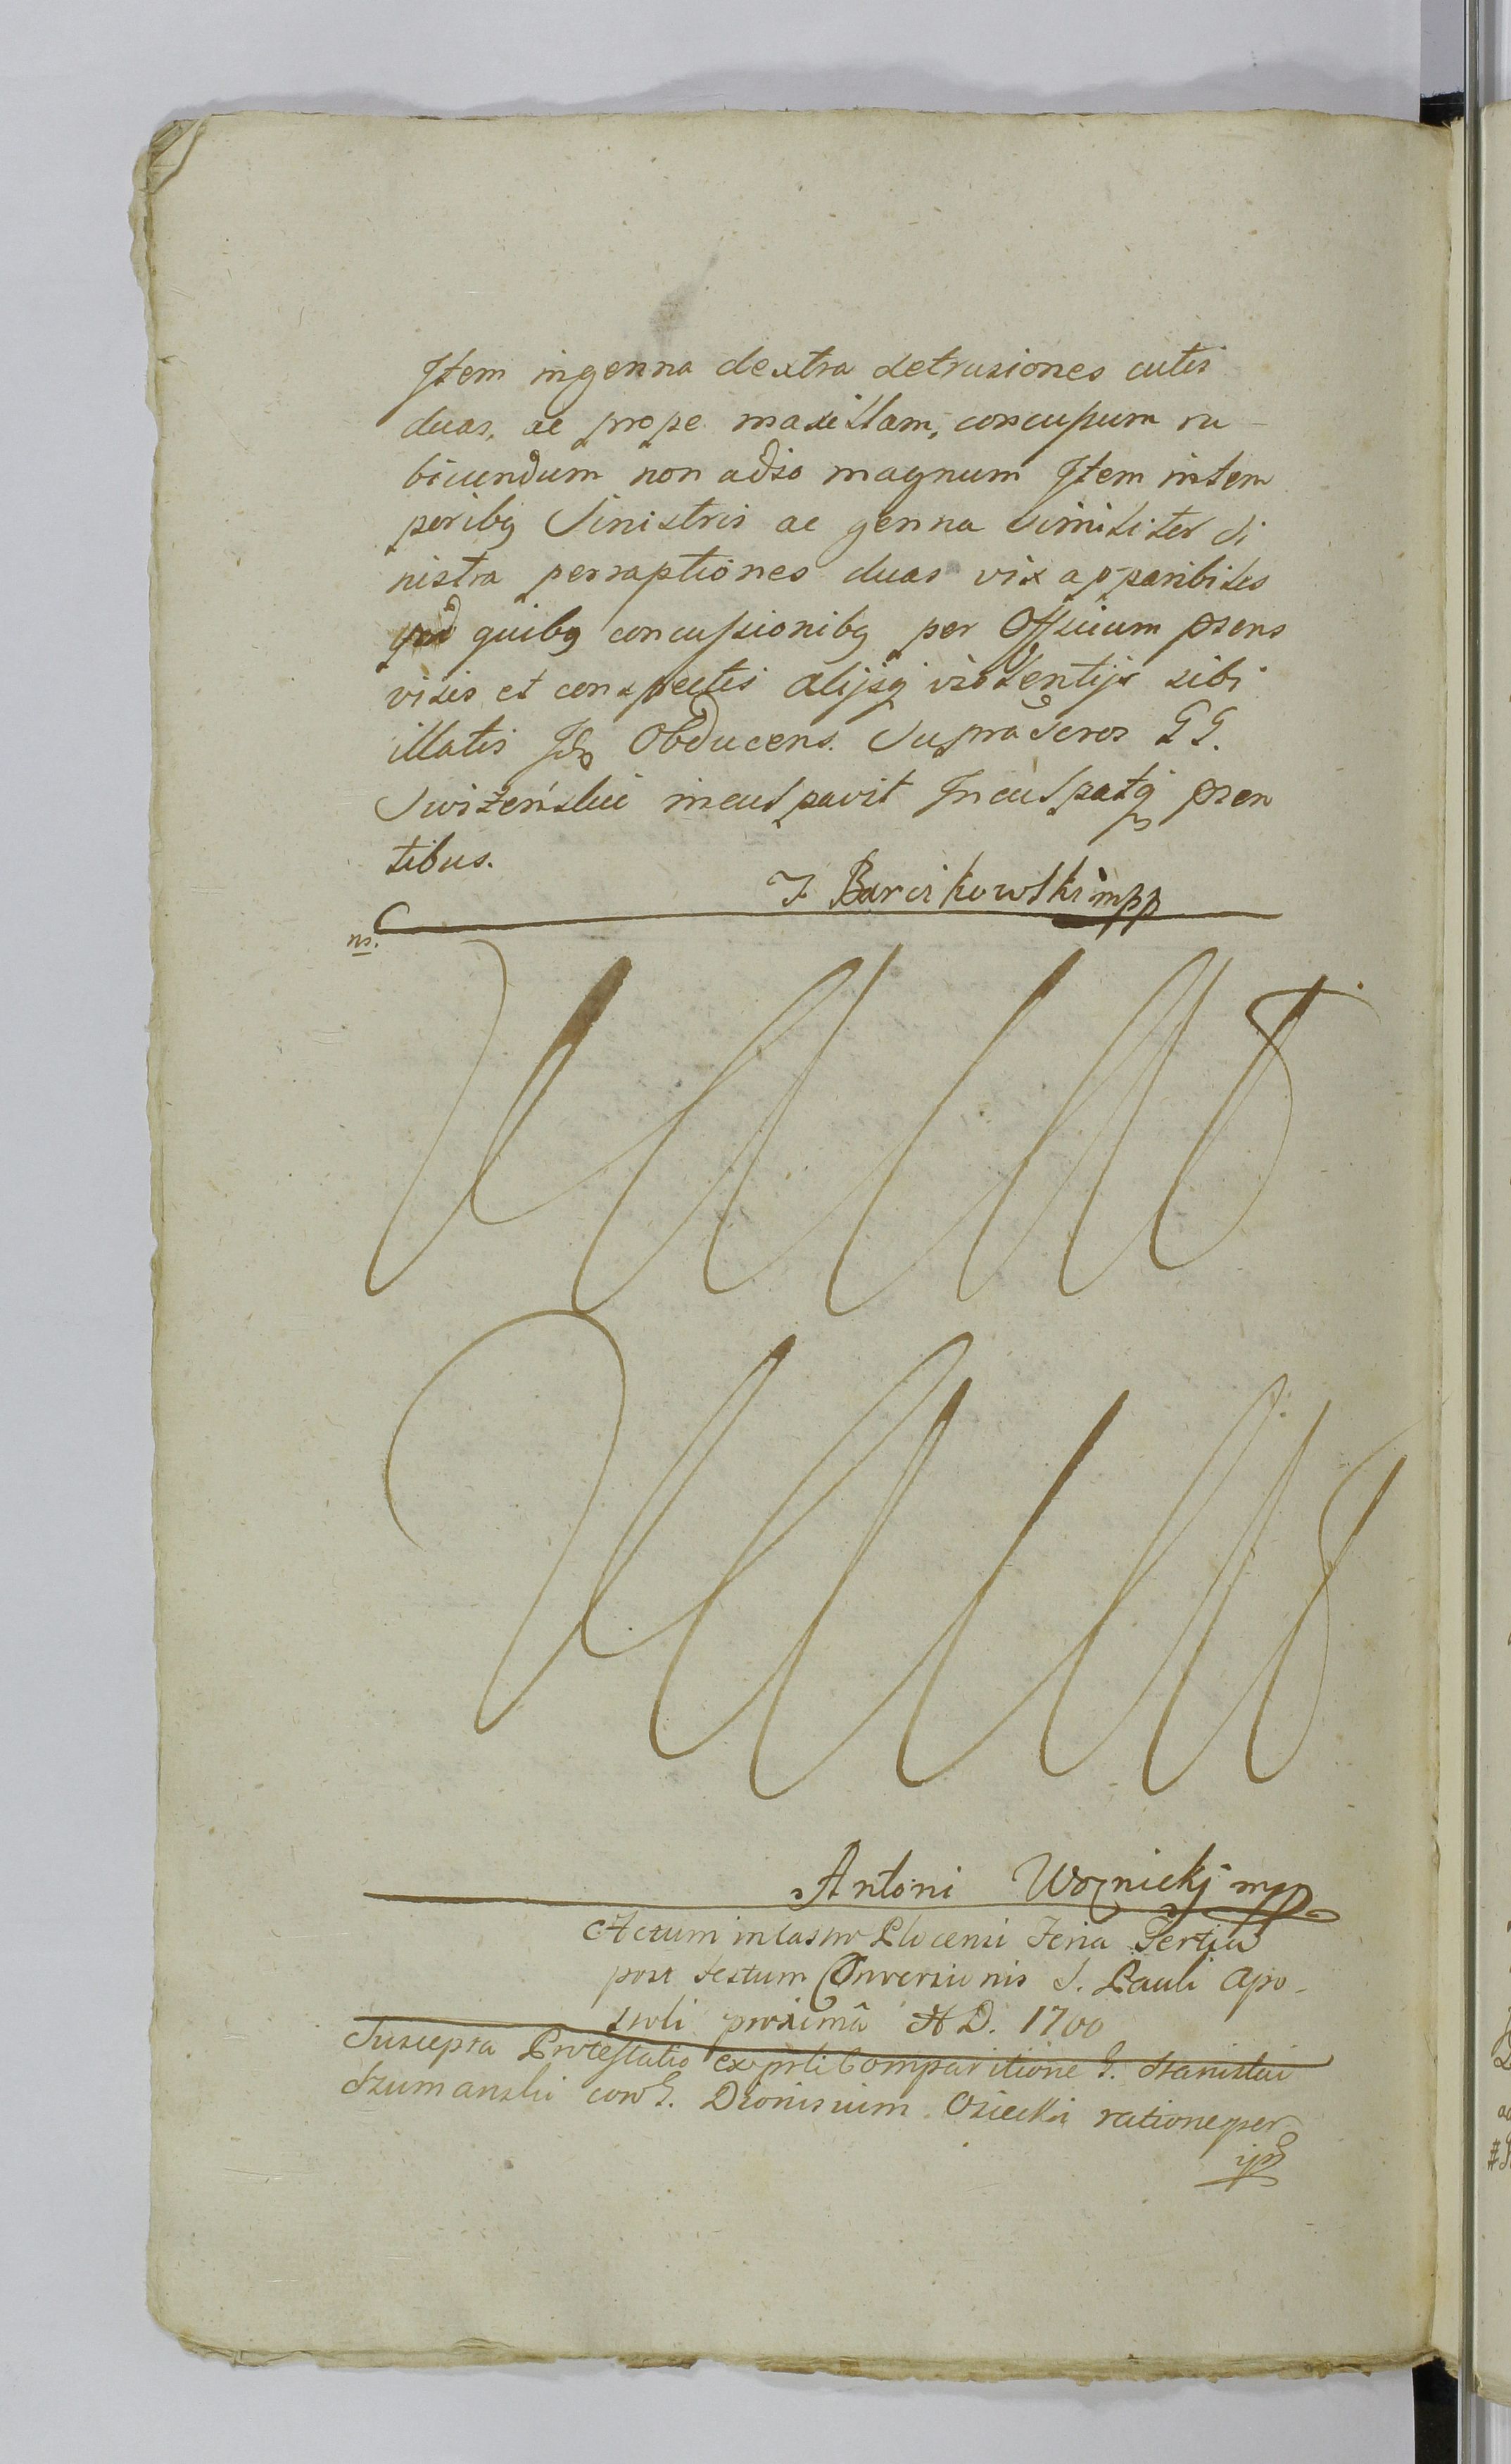 Item in genna dextra detrusiones cutis
duas, ac prope maxillam, concussum ru-
bicundum non adso magnum Item in tem
poribq Sinistris ac genna similiter si
nistra perraptiones duas vix apparibiles
quibq concussionibq per Officium psens
visis et conspectis alijsq violentijs sibi
illatis Idq Obducens. Supra Scros GG.
Swizeńskie inculpavit Inculpatq psen
tibus.
J Barcikowski mpp
ns.
Antoni Woznickj mpp
Actum in Castro Plocensi Feria Tertia
post Festum Conversionis S. Pauli Apo-
stoli proximâ A D. 1700
Suscepta Protestatio ex psti Comparitione G. Stanislai
Szumanski con G. Dionisium Osiecki ratione per